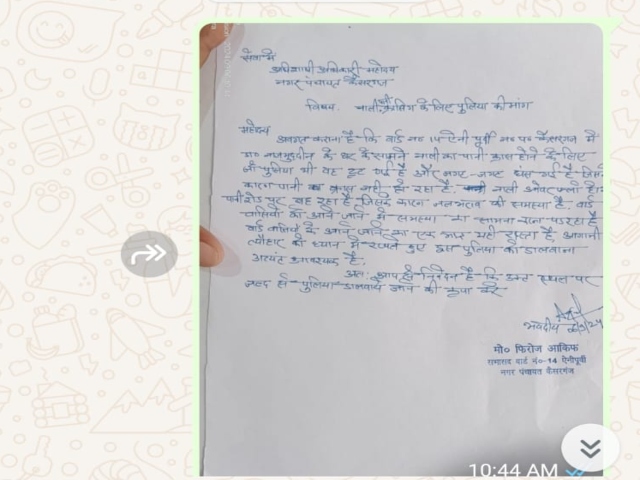 सेवा में
अधिशासी अधिकारी महोदय
नगर पंचायत कैसरगंज
विषय- नाली क्रासिंग के लिए पुलिया की मांग
महोदय
अवगत कराना है कि वार्ड न० 14 ऐनी पूर्वी न० प० कैसरगंज में
के घर के सामने नाली का पानी क्रास होने के लिए
जो पुलिया थी वह टूट गई है और जगह-जगह धंस गई है जिसके
कारण पानी क्रास नहीं हो रहा है नाली ओवर फ्लो होकर
पानी रोड पर बह रहा है जिसके कारण जलभराव की समस्या है. वार्ड
वासियों को आने जाने में समस्या का सामना करना पड़ रहा है
वार्ड वासियों के आने जाने का एक मात्र यही रास्ता है. आगामी
त्यौहार को ध्यान में रखते हुए इस पुलिया को डलवाना
अत्यंत आवश्यक है.
अतः आप से निवेदन है कि उक्त स्थल पर
जल्द से पुलिया डलवाये जाने की कृपा करें
भवदीय
मो० फिरोज आकिफ
सभासद वार्ड नं०-14 ऐनीपूर्वी
नगर पंचायत कैसरगंज
10:44 AM